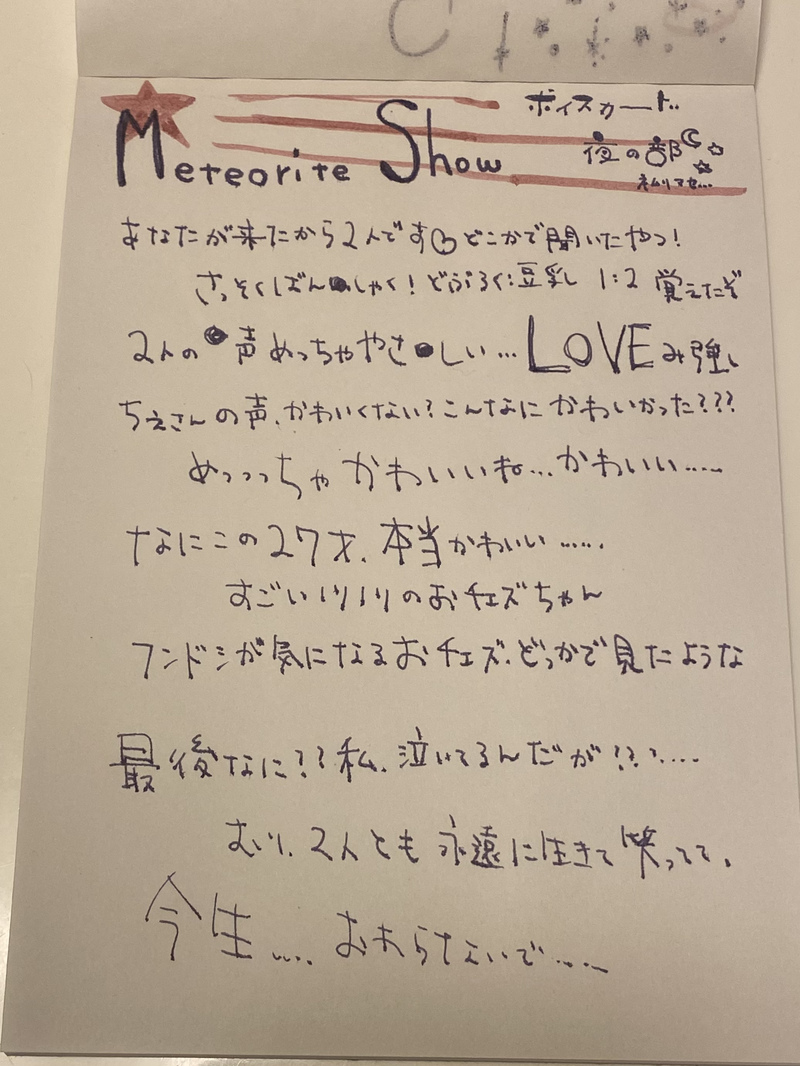 Meteorite Show
ボイスカード..
夜の部
ネムリマセ...
あなたが来たから2人です どこかで聞いたやつ!
さっそくばんしゃく! どぶろく:豆乳 1:2 覚えたぞ
2人の声めっちゃやさしい…LOVEみ強い
ちえさんの声、かわいくない?こんなにかわいかった???
めっっっちゃかわいいね…かわいい……
なにこの27才、本当かわいい……
すごいノリノリのおチェズちゃん
フンドシが気になるおチェズ、どっかで見たような
最後なに??私、泣いてるんだが???……
むり、2人とも永遠に生きて笑ってて。
今生…. おわらないで……